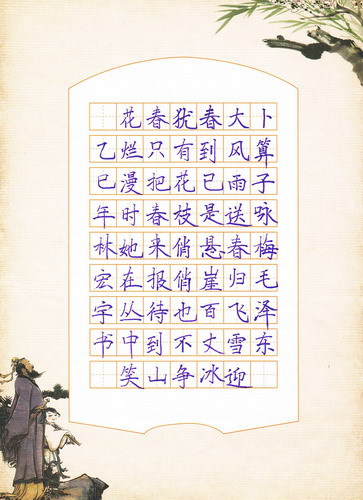 卜算子咏梅毛泽东
大风雨送春归飞雪迎
春到已是悬崖百丈冰
犹有花枝俏俏也不争
春只把春来报待到山
花烂漫时她在丛中笑
乙巳年林宏宇书